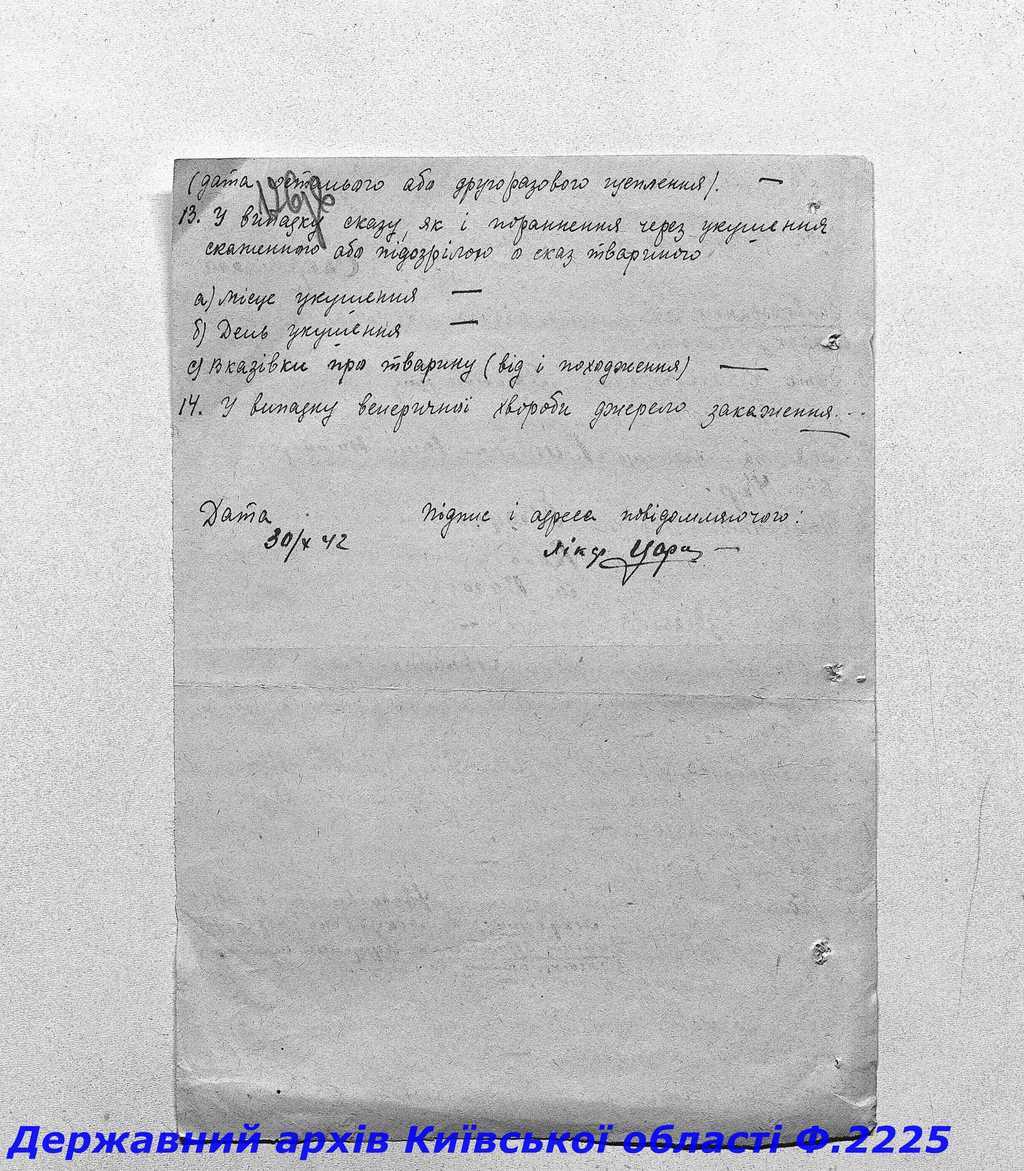 (дата останього або другоразового щеплення). —
13. У випадку сказу, як і поранення через укушення
скаженною або підозрілою о сказ твариною
а) Місце укушення —
б) День укушення —
с) Вказівки про тварину (від і походження) —
14. У випадку венеричної хвороби джерело закаження...
Дата Підпис і адреса повідомляючого:
30/X 42 лікар
Державний архів Київської області Ф.2225